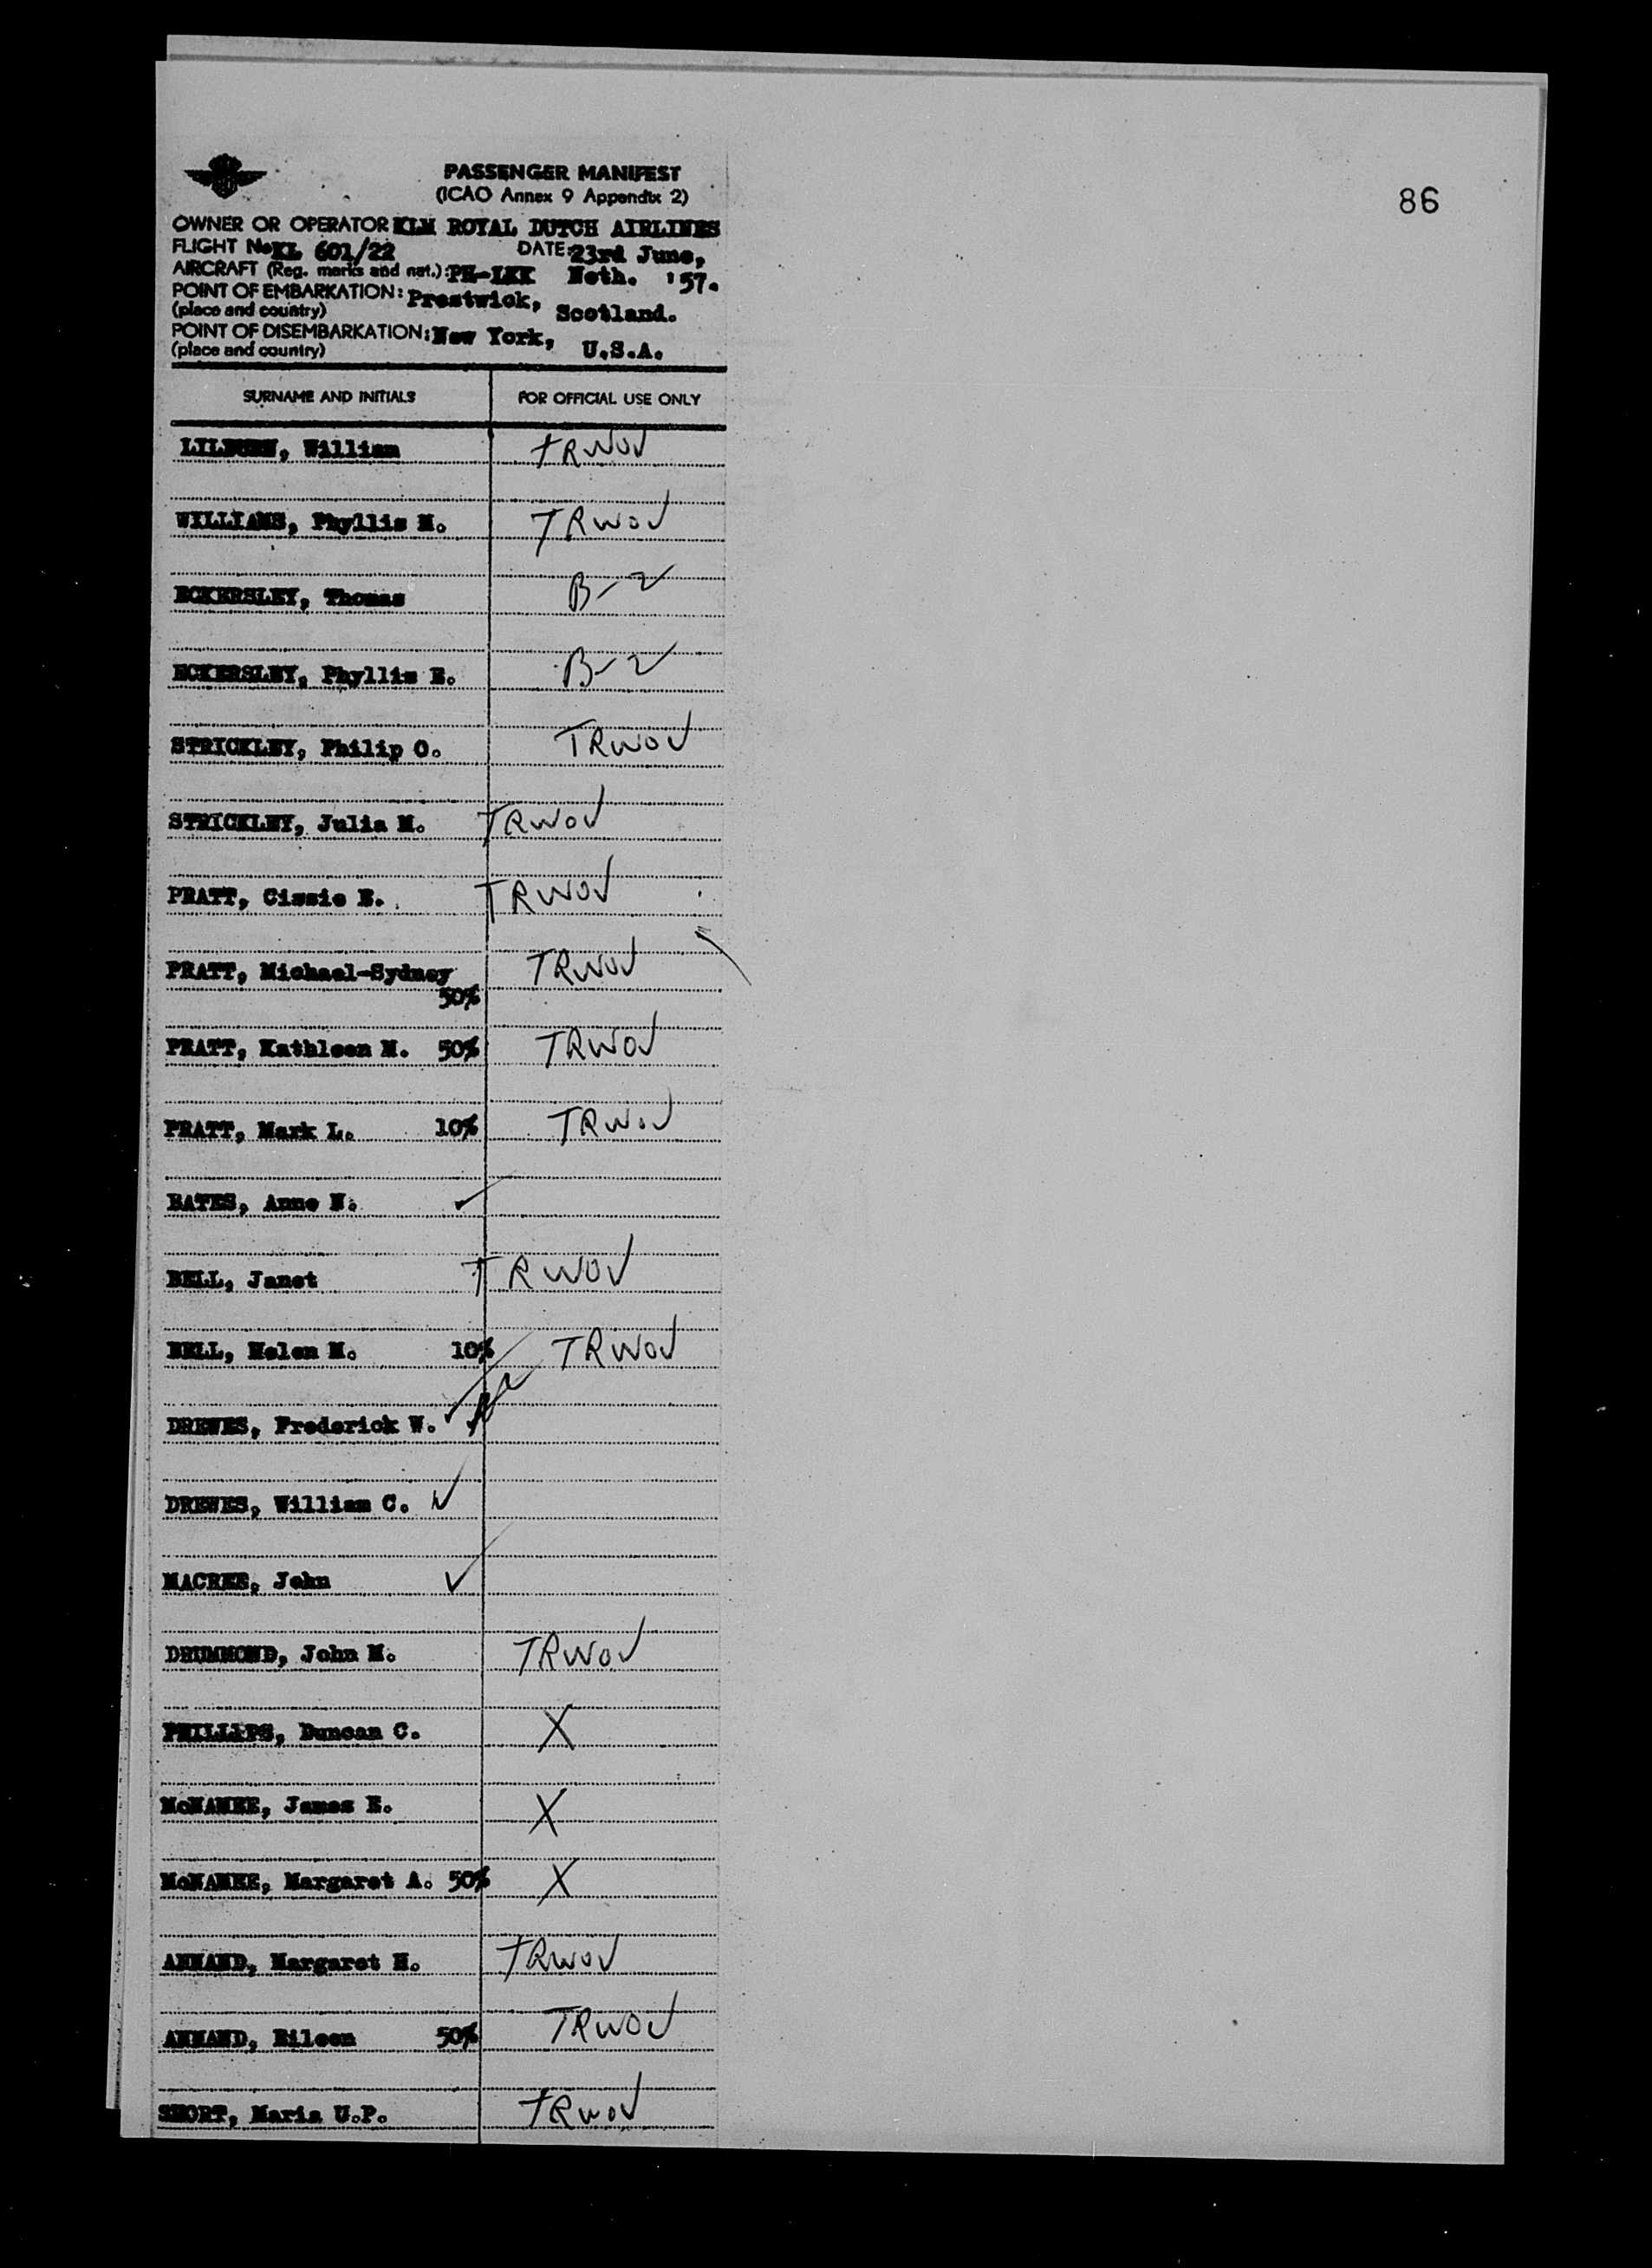 PASSENGER MANIFEST
(ICAO Annex 9 Appendix 2)
86
OWNER OR OPERATOR KLM ROYAL DUTCH AIRLINES
FLIGHT No. KL 601/22 DATE: 23rd June,
AIRCRAFT (Reg. marks and nat.): PH-LKK Neth. '57.
POINT OF EMBARKATION: Prestwick, Scotland.
(place and country)
POINT OF DISEMBARKATION: New York, U.S.A.
(place and country)
SURNAME AND INITIALS FOR OFFICIAL USE ONLY
LILBURN, William TRWOV
WILLIAMS, Phyllis M. TRWOV
ECKERSLEY, Thomas B-2
ECKERSLEY, Phyllis E. B-2
STRICKLEY, Philip O. TRWOV
STRICKLEY, Julia M. TRWOV
PRATT, Cissie E. TRWOV
PRATT, Michael-Sydney TRWOV
50%
PRATT, Kathleen M. 50% TRWOV
PRATT, Mark L. 10% TRWOV
BATES, Anne N. ✓
BELL, Janet TRWOV
BELL, Helen M. 10% TRWOV
DREWES, Frederick W. ✓
DREWES, William C. ✓
MACREE, John ✓
DRUMMOND, John M. TRWOV
PHILLIPS, Duncan C. X
McNAMEE, James E. X
McNAMEE, Margaret A. 50% X
ANNAND, Margaret H. TRWOV
ANNAND, Eileen 50% TRWOV
SHORT, Maria U.P. TRWOV